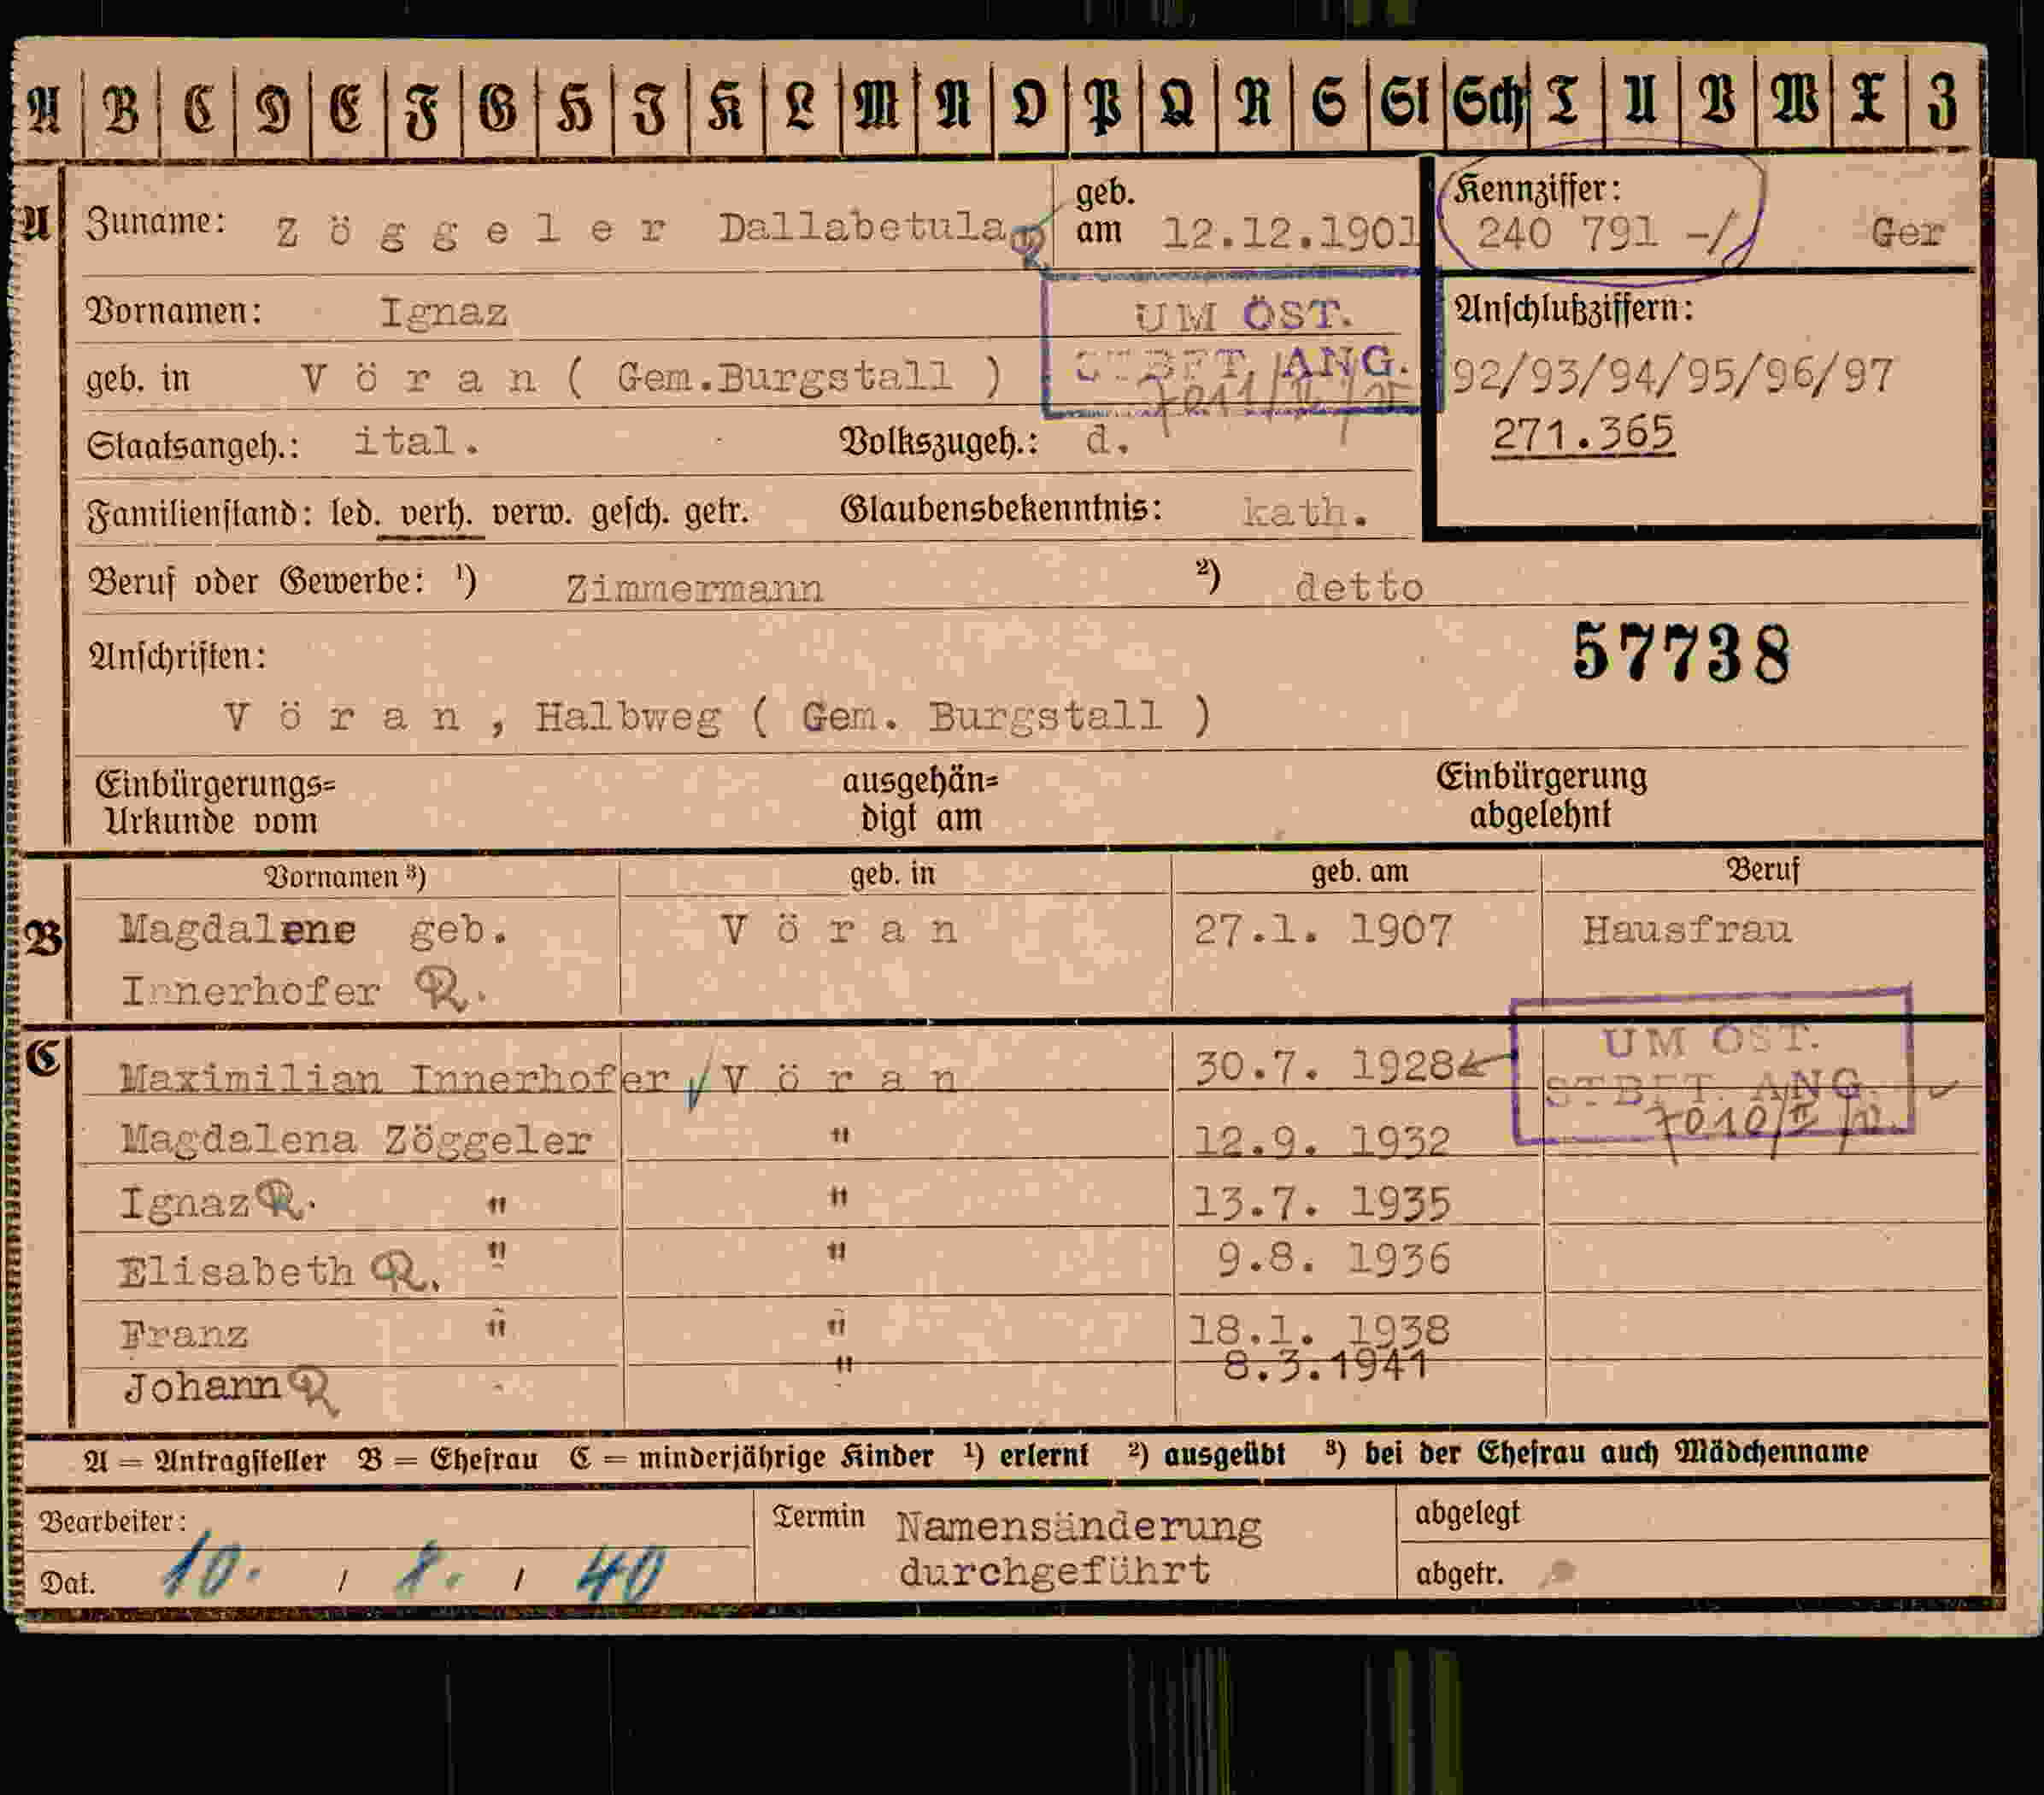 A B C D E F G H I K L M N O P Q R S St Sch T U V W X Z
A Zuname: Z ö g g e l e r Dallabetula geb. am 12.12.1901 Kennziffer: 240 791 -/ Ger
Vornamen: Ignaz UM ÖST. Anschlußziffern:
geb. in V ö r a n ( Gem.Burgstall ) STBFT. ANG. 92/93/94/95/96/97
7011/II
271.365
Staatsangeh.: ital. Volkszugeh.: d.
Familienstand: led. verh. verw. gesch. getr. Glaubensbekenntnis: kath.
Beruf oder Gewerbe: ¹) Zimmermann ²) detto
Anschriften: 57738
V ö r a n , Halbweg ( Gem. Burgstall )
Einbürgerungs= ausgehän= Einbürgerung
Urkunde vom digt am abgelehnt
Vornamen ³) geb. in geb. am Beruf
B Magdalene geb. V ö r a n 27.1. 1907 Hausfrau
Innerhofer R.
C Maximilian Innerhofer V ö r a n 30.7. 1928 UM ÖST.
STBFT. ANG.
7010/II
Magdalena Zöggeler " 12.9. 1932
Ignaz R. " " 13.7. 1935
Elisabeth R. " " 9.8. 1936
Franz " " 18.1. 1938
Johann R " 8.3.1941
A = Antragsteller B = Ehefrau C = minderjährige Kinder ¹) erlernt ²) ausgeübt ³) bei der Ehefrau auch Mädchenname
Bearbeiter: Termin Namensänderung abgelegt
Dat. 10. / 8. / 40 durchgeführt abgetr.